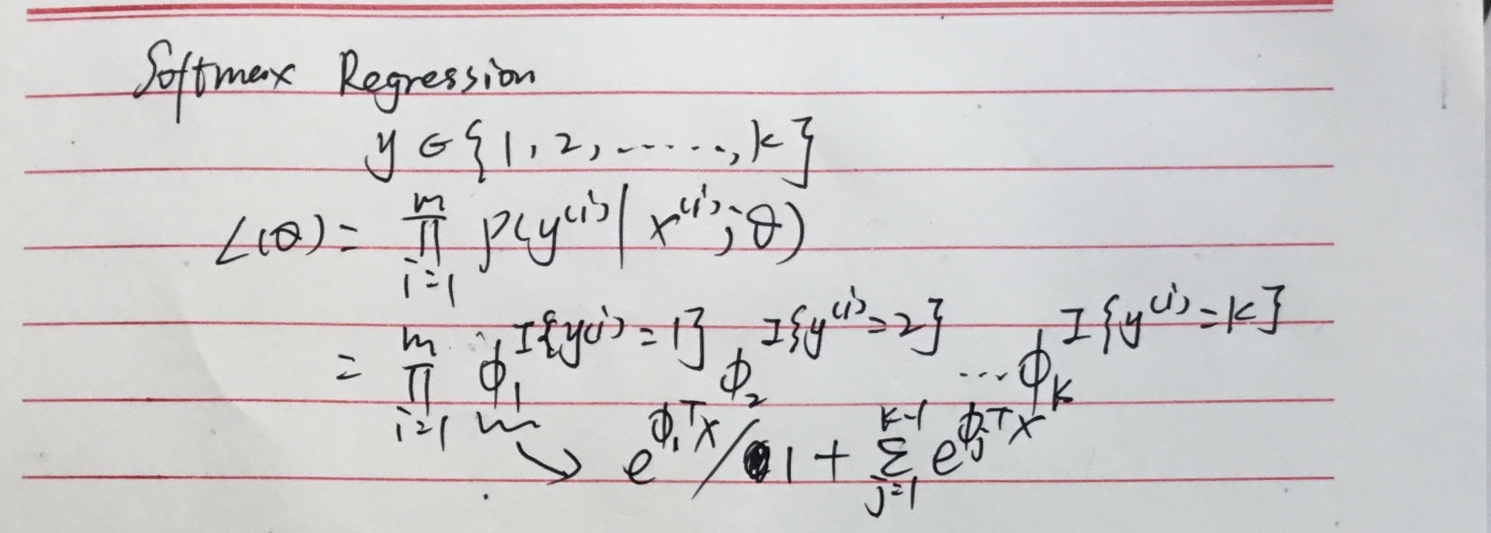 Softmax Regression
y ∈ {1, 2, ......, k}
L(θ) = ∏_{i=1}^{m} P(y^{(i)} | x^{(i)}; θ)
= ∏_{i=1}^{m} ϕ_1^{I{y^{(i)} = 1}} ϕ_2^{I{y^{(i)} = 2}} ... ϕ_k^{I{y^{(i)} = k}}
→ e^{ϕ_1^T x} / 1 + ∑_{j=1}^{k-1} e^{ϕ_j^T x}